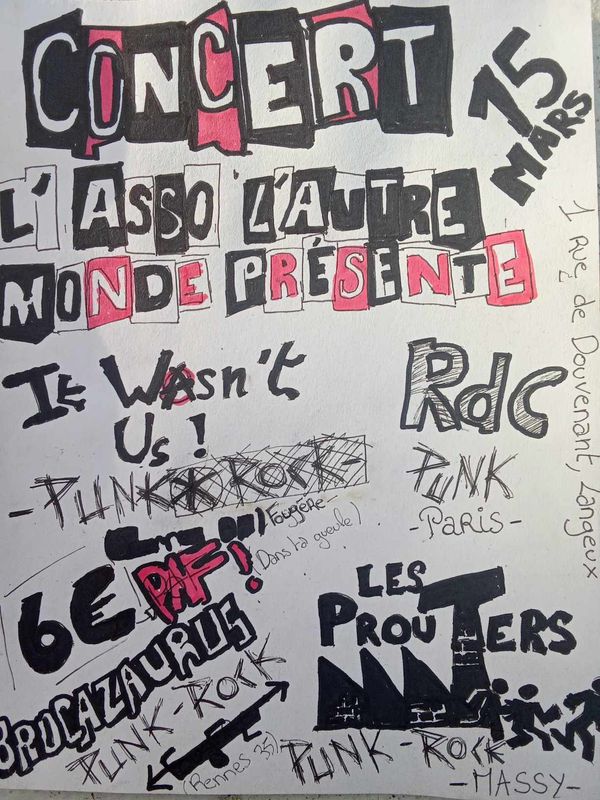 CONCERT
15
MARS
L'ASSO L'AUTRE
MONDE PRÉSENTE
1 Rue de Douvenant, Langeux
It Wasn't
Us!
-PUNK ROCK-
Fougère-
RdC
PUNK
-Paris-
6E PAF!
(Dans ta gueule)
BROCAZAURUS
PUNK-ROCK
(Rennes 35)
LES
PROUTERS
PUNK-ROCK
-MASSY-